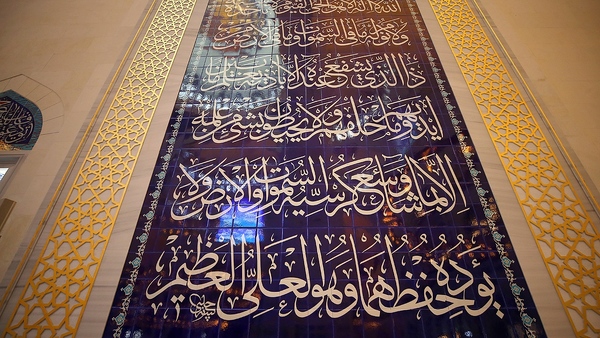 الله لا إله إلا هو الحي القيوم
ولا نوم له ما في السموات وما في الأرض من
ذا الذي يشفع عنده إلا بإذنه يعلم ما بين
أيديهم وما خلفهم ولا يحيطون بشيء من علمه
إلا بما شاء وسع كرسيه السموات والأرض ولا
يؤده حفظهما وهو العلي العظيم